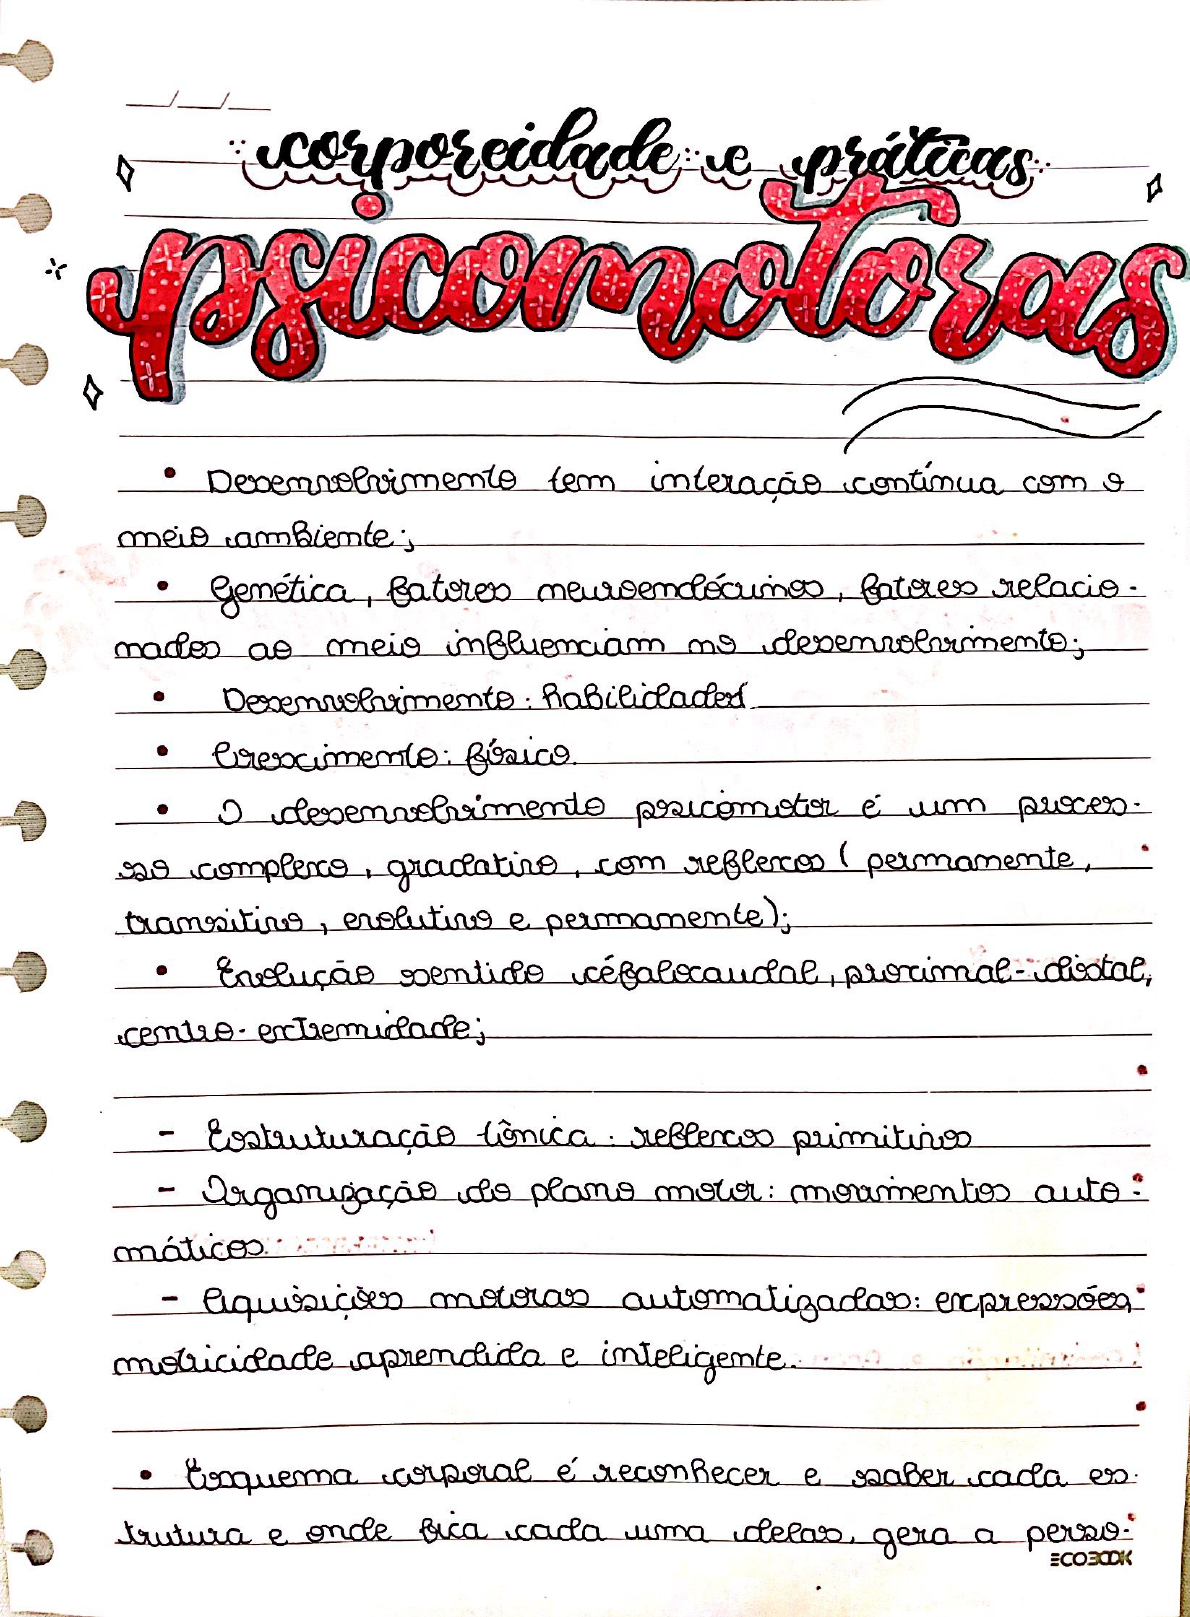 __/__/__
corporeidade e práticas
psicomotoras
• Desenvolvimento tem interação contínua com o
meio ambiente;
• Genética, fatores neuroendócrinos, fatores relacio-
nados ao meio influenciam no desenvolvimento;
• Desenvolvimento: habilidades
• Crescimento: físico.
• O desenvolvimento psicomotor é um proces-
so complexo, gradativo, com reflexos (permanente,
transitivo, evolutivo e permanente);
• Evolução sentido céfalocaudal, proximal-distal,
centro-extremidade;
- Estruturação tônica: reflexos primitivos
- Organização do plano motor: movimentos auto-
máticos.
- Aquisições motoras automatizadas: expressões,
motricidade aprendida e inteligente.
• Esquema corporal é reconhecer e saber cada es-
trutura e onde fica cada uma delas, gera a perso-
ECOBOOK